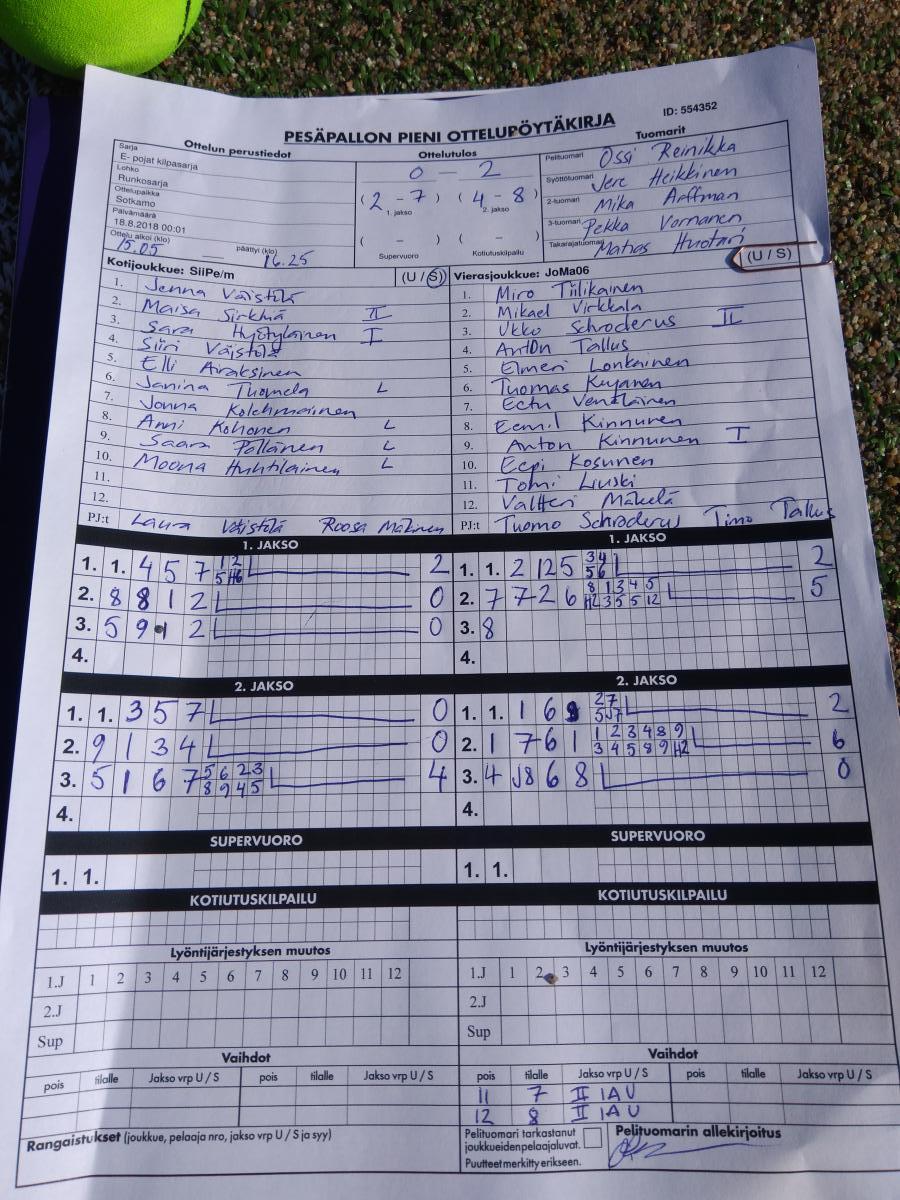 PESÄPALLON PIENI OTTELUPÖYTÄKIRJA
ID: 554352
Ottelun perustiedot
Sarja
E- pojat kilpasarja
Lohko
Runkosarja
Ottelupaikka
Sotkamo
Päivämäärä
18.8.2018 00:01
Ottelu alkoi (klo) päättyi (klo)
15.05 16.25
Ottelutulos
0 - 2
(2 - 7) (4 - 8)
1. jakso 2. jakso
( - ) ( - )
Supervuoro Kotiutuskilpailu
Tuomarit
Pelituomari Ossi Reinikka
Syöttötuomari Jere Heikkinen
2-tuomari Mika Arffman
3-tuomari Pekka Vornanen
Takarajatuomari Matias Huotari
Kotijoukkue: SiiPe/m (U / S)
1. Jenna Väistölä
2. Maisa Sirkkiä II
3. Sara Hyötyläinen I
4. Siiri Väistölä
5. Elli Airaksinen
6. Janina Tuomela L
7. Jonna Kolehmainen
8. Anni Kohonen L
9. Saara Pöllänen L
10. Moona Huhtilainen L
11.
12.
PJ:t Laura Väistölä Roosa Mäkinen
Vierasjoukkue: JoMa06 (U / S)
1. Miro Tiilikainen
2. Mikael Virkkala
3. Ukko Schroderus II
4. Anton Tallus
5. Elmeri Lonkainen
6. Tuomas Kujanen
7. Eetu Venäläinen
8. Eemil Kinnunen
9. Anton Kinnunen I
10. Eepi Kosunen
11. Tomi Liuski
12. Valtteri Mäkelä
PJ:t Tuomo Schroderus Timo Tallus
1. JAKSO
1. 1. 4 5 7 1 2 2
5 H6
2. 8 8 1 2 0
3. 5 9 1 2 0
4.
2. JAKSO
1. 1. 3 5 7 0
2. 9 1 3 4 0
3. 5 1 6 7 5 6 2 3 4
8 9 4 5
4.
SUPERVUORO
1. 1.
KOTIUTUSKILPAILU
Lyöntijärjestyksen muutos
1.J 1 2 3 4 5 6 7 8 9 10 11 12
2.J
Sup
Vaihdot
pois tilalle Jakso vrp U / S pois tilalle Jakso vrp U / S
Rangaistukset (joukkue, pelaaja nro, jakso vrp U / S ja syy)
1. JAKSO
1. 1. 2 12 5 3 4 2
5 6
2. 7 7 2 6 8 1 3 4 5 5
H2 3 5 5 12
3. 8
4.
2. JAKSO
1. 1. 1 6 9 2 7 2
5 J7
2. 1 7 6 1 1 2 3 4 8 9 6
3 4 5 8 9 H2
3. 4 J8 6 8 0
4.
SUPERVUORO
1. 1.
KOTIUTUSKILPAILU
Lyöntijärjestyksen muutos
1.J 1 2 3 4 5 6 7 8 9 10 11 12
2.J
Sup
Vaihdot
pois tilalle Jakso vrp U / S pois tilalle Jakso vrp U / S
11 7 II 1A U
12 8 II 1A U
Pelituomari tarkastanut
joukkueiden pelaajaluvat.
Puutteet merkitty erikseen.
Pelituomarin allekirjoitus